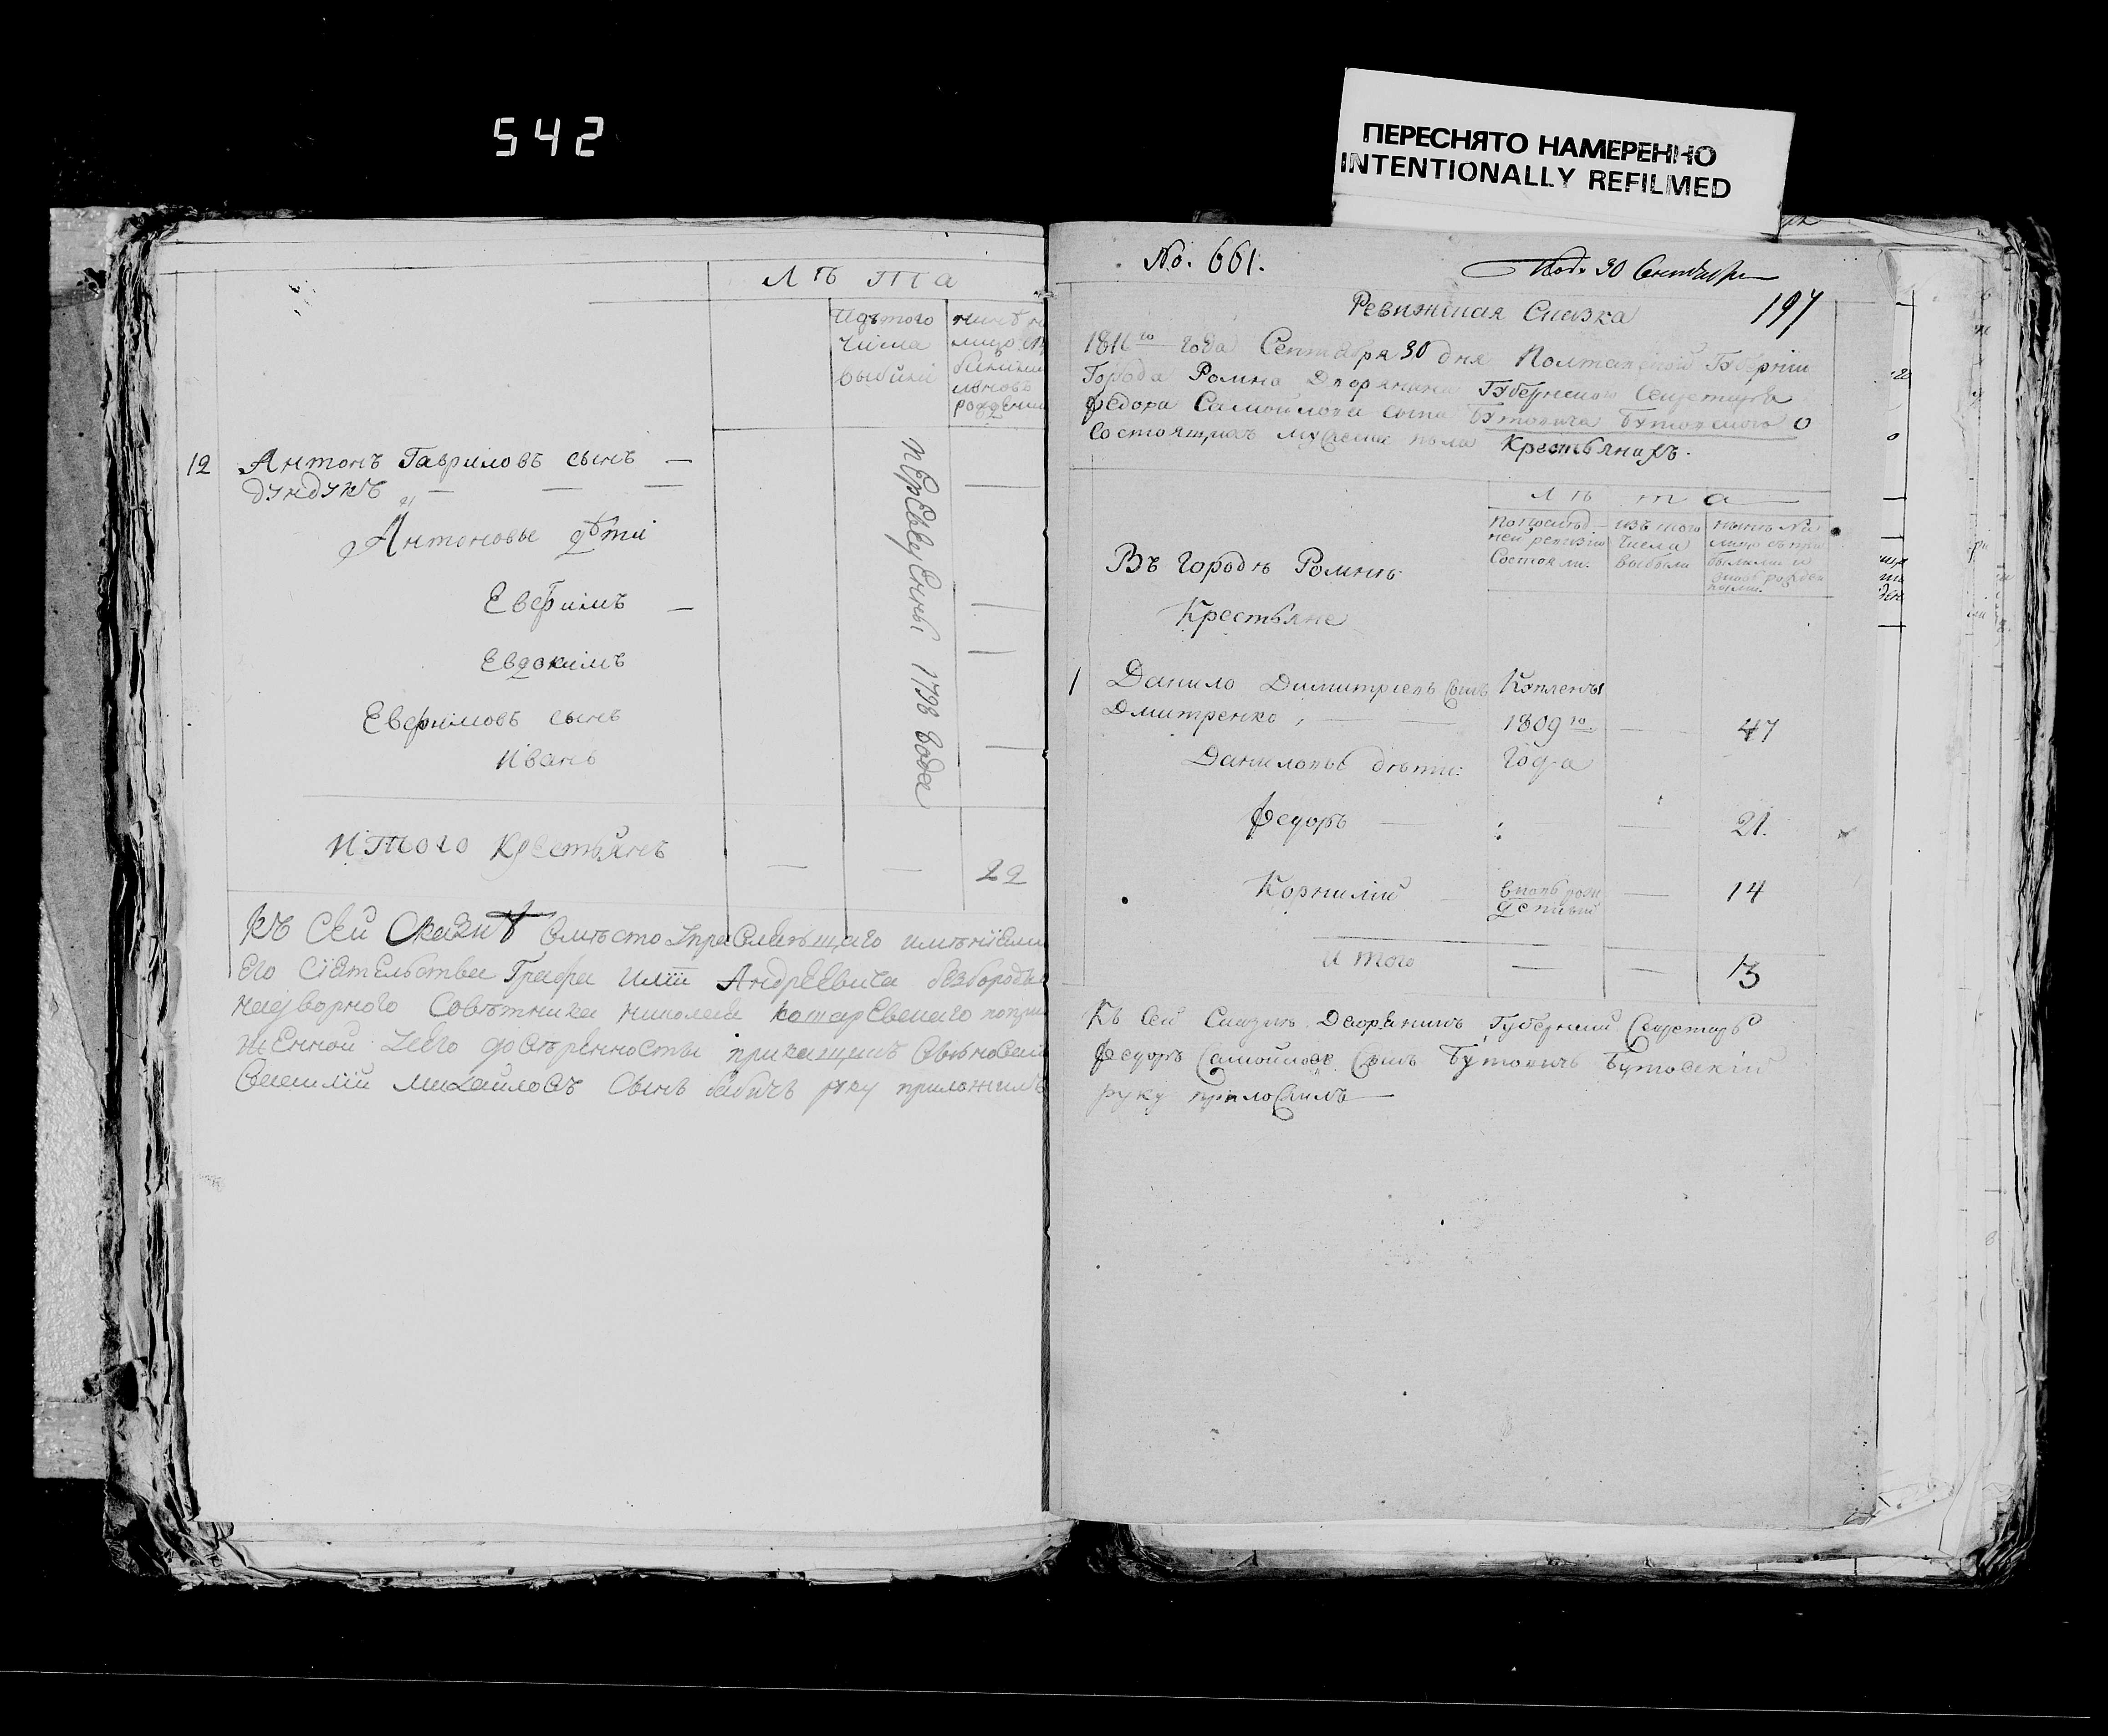 542
ПЕРЕСНЯТО НАМЕРЕННО
INTENTIONALLY REFILMED
Л ѣ т а
Изътого
числа
выбили
рожденн
12 Антонъ Гавриловъ сынъ —
дундукъ — — —
Антоновы дѣти
Евфимъ —
Евдокимъ
Евфимовъ сынъ
Иванъ
переведены 1798 года
Итого крестьянъ — — 22
Къ сей Сказкѣ вмѣсто управляющаго имѣніем
его сіятельства Графа Иліи Андреевича безбородк
надворного совѣтника николая котаревскаго
женной довѣренности прикащикъ
василій михайловъ сынъ бабичъ руку приложилъ
No. 661.
Под. 30 Сентября
197
Ревижская Сказка
1816го года Сентября 30 дня Полтавской Губерніи
Города Ромна Дворянина Губернского Секретаря
Федора Самойлова сына Бутовича Бутовского о
Состоящихъ мужеска пола Крестьянахъ.
Л ѣ т а
Попослѣд-
ней ревизіи
Состояли.
изъ того
числа
выбыли
нынѣ на
лицо
Въ городѣ Ромнѣ
Крестьяне
1 Данило Димитріевъ сынъ Купленъ
Дмитренко, — — 1809го — 47
Даниловы дѣти: года
Федоръ — — 21.
Корнилій — 14
Итого — — 3
Къ сей Сказкѣ Дворянинъ Губернскій Секретарь
Федоръ Самойловъ Сынъ Бутовичъ Бутовскій
руку приложилъ —